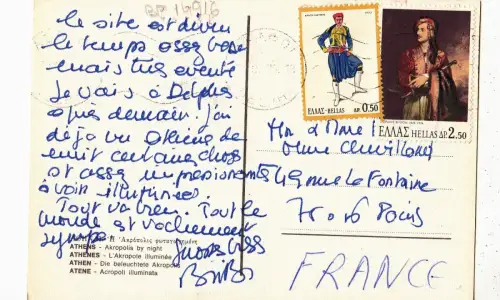 GR 16916
le site est divin
le temps assez beau
mais très eventé
je vais à Delphes
après demain. j'ai
déjà vu Athènes de
nuit certaines choses
st assez impressionants
à voir illuminées.
Tout va bien. Tout le
monde est vachement
sympa
Gros bises
ATHENS - Akropolis by night
ATHENES - L'Akropole illuminée
ATHEN - Die beleuchtete Akropolis
ATENE - Acropoli illuminata
ΕΛΛΑΣ-HELLAS ΔΡ. 0.50
ΕΛΛΑΣ HELLAS ΔΡ. 2.50
Mr & Mme
49 rue La Fontaine
75016 Paris
FRANCE